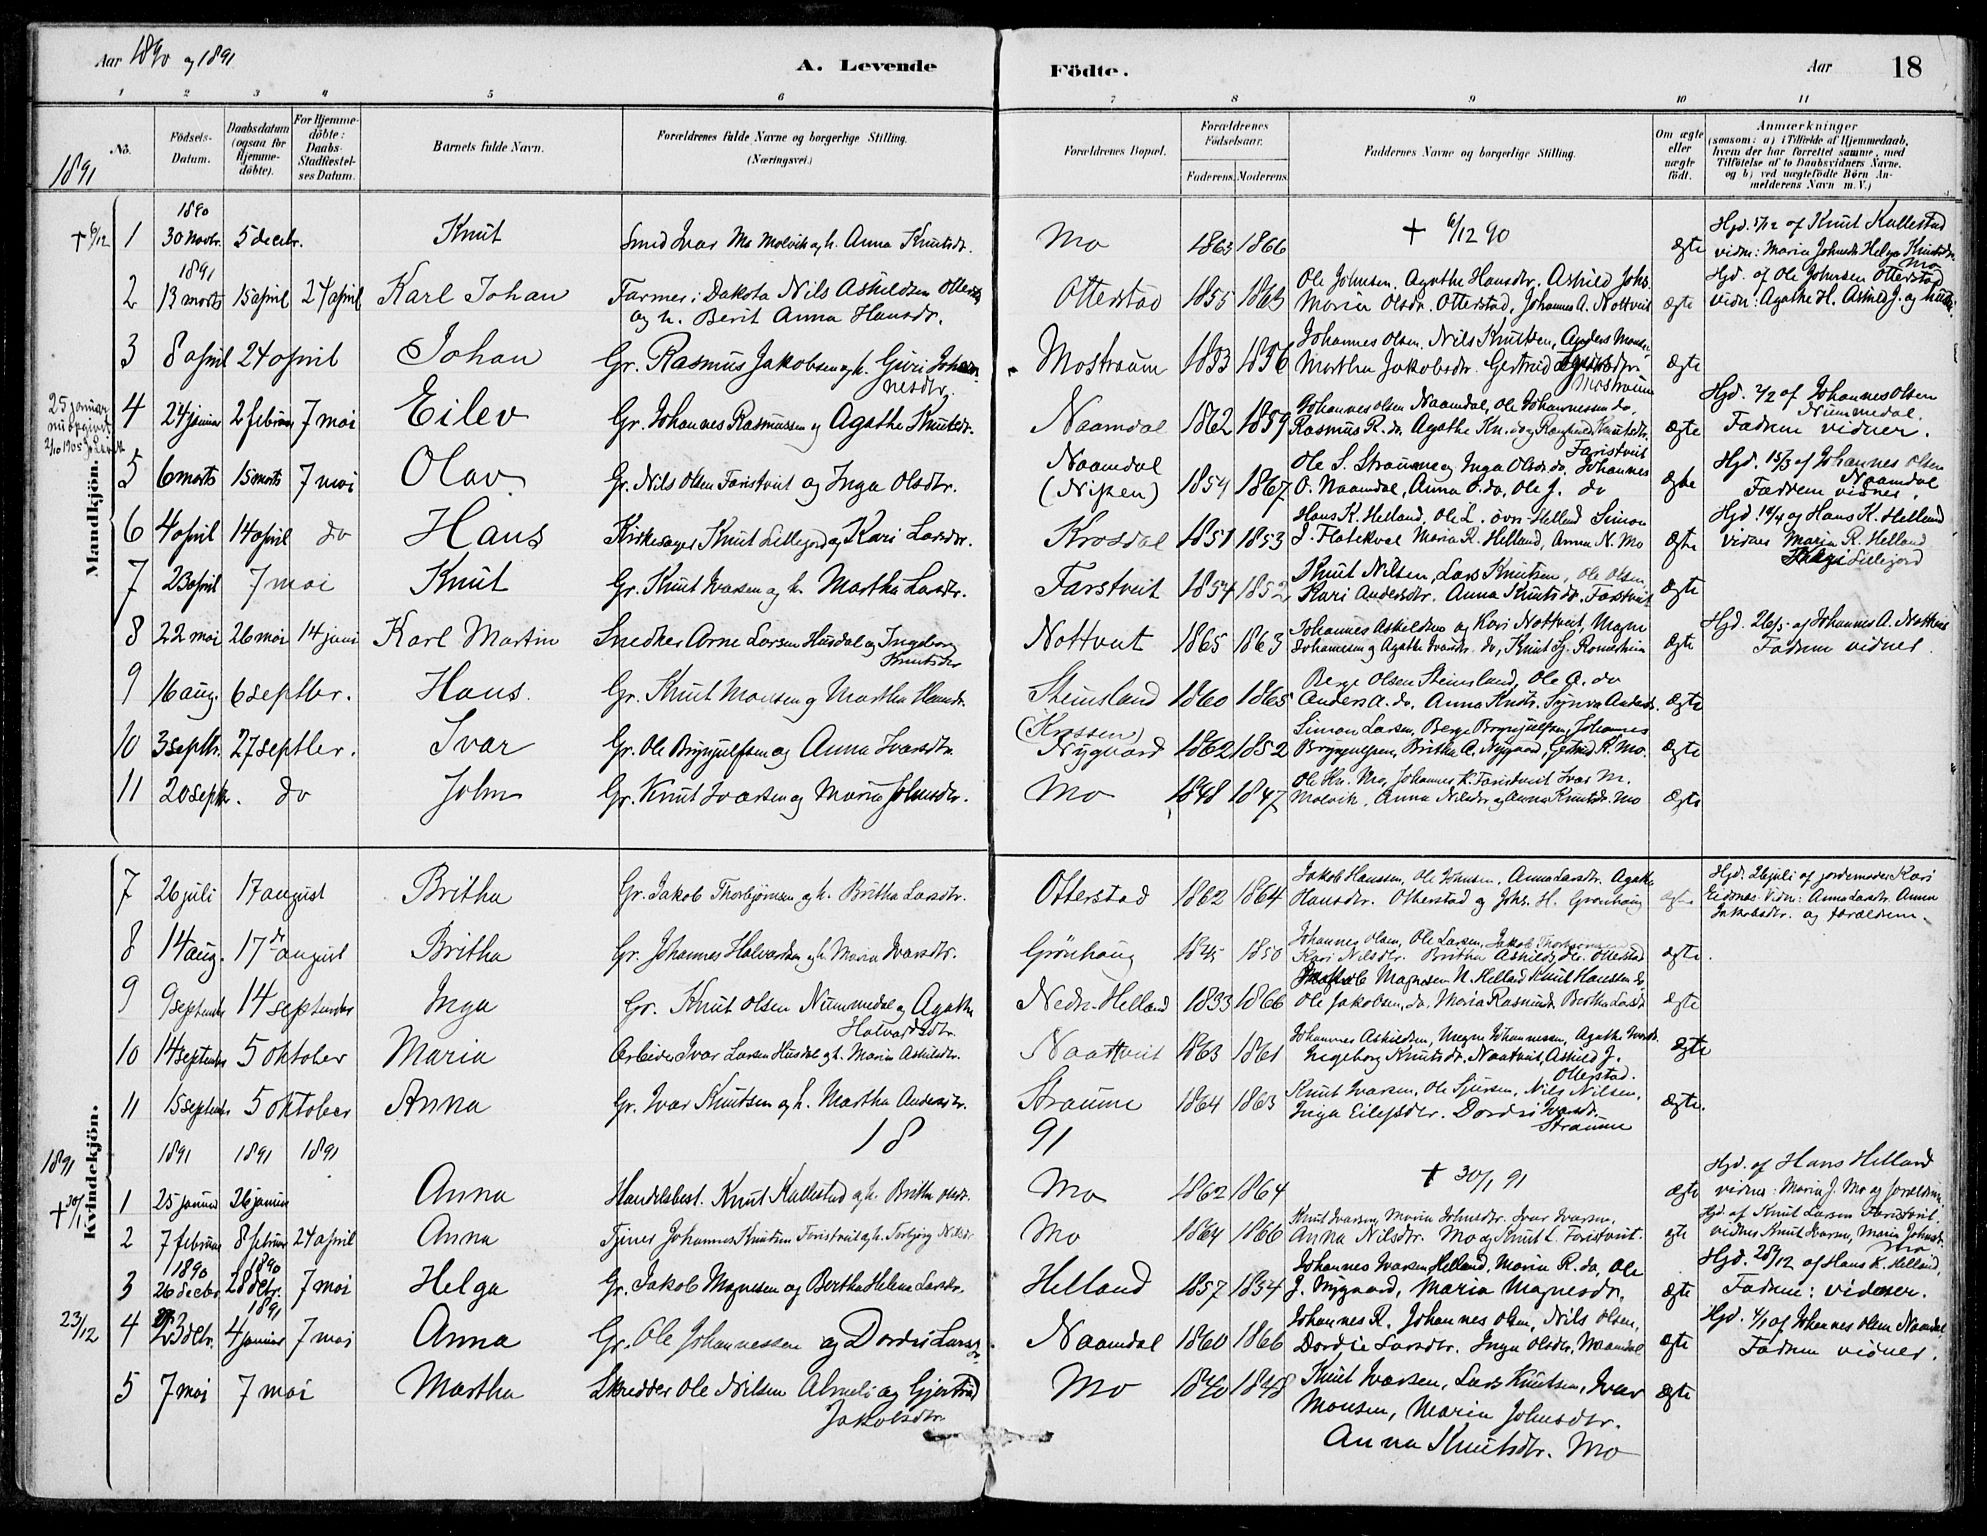 Aar 1890 og 1891 A. Levende Födte. Aar 18
1 2 3 4 5 6 7 8 9 10 11
No. Födsels-Datum. Daabsdatum (ogsaa for Hjemme-döbte). For Hjemme-döbte: Daabs-Stadfæstel-ses Datum. Barnets fulde Navn. Forældrenes fulde Navne og borgerlige Stilling. (Næringsvei.) Forældrenes Bopæl. Forældrenes Födselsaar. Faderens. Moderens. Faddernes Navne og borgerlige Stilling. Om ægte eller uægte födt. Anmærkninger (saasom: a) i Tilfælde af Hjemmedaab, hvem der har forrettet samme, med Tilföielse af to Daabsvidners Navne, og b) ved uægtefödte Börn An-melderens Navn m. V.)
1891
Mandkjön.
1890
† 6/12 1 30 Novbr. 5 decbr. Knut Smed Ivar Ms Molvik og h. Anna Knutsdr. Mo 1863 1866 † 6/12 90 ægte Hjd. 5/12 af Knut Kallestad
vidn: Maria Johnsdr Helga Knutsdr
Mo
1891
2 13 marts 15 april 24 april Karl Johan Farmer i Dakota Nils Askildsen Otterstad
og h. Berit Anna Hansdr. Otterstad 1855 1863 Ole Johnsen, Agathe Hansdtr. Askild Johs.
Maria Olsdr. Otterstad, Johannes A. Nottveit ægte Hjd. af Ole Johnsen Otterstad
vidn: Agathe H. Askild J. og
3 8 april 24 april Johan Gr. Rasmus Jakobsen og h. Guri Johan-
nesdtr. Mostraum 1833 1856 Johannes Olsen, Nils Knutsen, Anders Monsen
Martha Jakobsdtr. Gertrud
Mostraum ægte
25 januar
2/10 1905
4 24 januar 2 februar 7 mai Eilev Gr. Johannes Rasmussen og Agathe Knutsdr. Naamdal 1862 1859 Johannes Olsen Naamdal, Ole Johannessen do,
Rasmus R. do, Agathe Kn. do og Ragnild Knutsdr.
Faristveit ægte Hjd. 2/2 af Johannes Olsen
Nummedal.
Fadrene vidner.
5 6 marts 15 marts 7 mai Olav Gr. Nils Olsen Faristveit og Inga Olsdtr. Naamdal
(Nipen) 1854 1867 Ole S. Straume og Inga Olsdr do, Johannes
O. Naamdal, Anna O. do, Ole J. do ægte Hjd. 15/3 af Johannes Olsen
Naamdal
Faddrene vidner.
6 4 april 14 april do Hans Kirkesanger Knut Lillejord og Kari Larsdr. Krosdal 1851 1853 Hans K. Helland, Ole L. övr. Helland Simon
S. Flatekval Maria R. Helland, Anna N. Mo ægte Hjd. 14/4 af Hans K. Helland
vidner Maria R. Helland
Lillejord
7 23 april 7 mai Knut Gr. Knut Ivarsen og h. Martha Larsdr. Farstveit 1854 1852 Knut Nilsen, Lars Knutsen, Ole Olsen,
Kari Andersdtr. Anna Knutsdr. Farstveit ægte
8 22 mai 26 mai 14 juni Karl Martin Snedker Arne Larsen Husdal og Ingeborg
Knutsdr Nottveit 1865 1863 Johannes Askildsen og Kari Nottveit, Magne
Johannesen og Agathe Ivarsdr. do, Knut Sj. Romarheim ægte Hjd. 26/5 af Johannes A. Nottveit
Fadrene vidner.
9 16 aug. 6 septbr. Hans. Gr. Knut Monsen og Martha Hansdr. Steinsland
(Krossen) 1860 1865 Berge Olsen Steinsland, Ole A. do
Anders A. do, Anna Knutsdr. Synva Andersdr. ægte
10 3 septbr. 27 septbr. Ivar Gr. Ole Brynjulfsen og Anna Ivarsdtr. Nygaard 1862 1852 Simon Larsen, Berge Brynjulfsen, Johannes
Brynjulfsen, Britha O. Nygaard, Gertrud R. Mo. ægte
11 20 septbr. do John Gr. Knut Ivarsen og Maria Johnsdr. Mo 1848 1847 Ole Kn. Mo, Johannes K. Faristveit Ivar M.
Molvik, Anna Nilsdr og Anna Knutsdr. Mo ægte
Kvindekjön.
7 26 juli 17 august Britha Gr. Jakob Thorbjörnsen og h. Britha Larsdtr. Otterstad 1862 1864 Jakob Hanssen, Ole Johnsen, Anna Larsdr. Agathe
Hansdtr. Otterstad og Johs. H. Grönhaug ægte Hjd. 26 juli af jordemoder Kari
Eidsnes. Vidn: Anna Larsdr. Anna
Jakobsdtr. og forældrene.
8 14 aug. 17de august Britha Gr. Johannes Halvardsen og h. Maria Ivarsdtr. Grönhaug 1845 1850 Johannes Olsen, Ole Larsen, Jakob Thorbjörnsen
Kari Nilsdtr. Britha Askildsdtr. Otterstad ægte.
9 9 september 14 september Inga Gr. Knut Olsen Nummedal og Agathe
Halvardsdtr. Nedr. Helland 1833 1866 Magnesen N. Helland Knut Hanssen do
Ole Jakobsen do, Maria Rasmusdr Bertha Larsdr ægte
10 14 september 5 oktober Maria Arbeider Ivar Larsen Husdal og h. Maria Askildsdr. Naattveit 1863 1861 Johannes Askildsen, Magne Johannessen, Agathe Ivarsdr.
Ingeborg Knutsdr. Naatveit, Askild J.
Otterstad. ægte
11 15 september 5 oktober Anna Gr. Ivar Knutsen og h. Martha Andersdtr. Straume 1864 1863 Knut Ivarsen, Ole Sjursen, Nils Nilsen,
Inga Eilefsdtr. Dordei Ivarsdr.
Straume ægte.
1891 1891 1891 1891 18 91
† 30/1 1 25 januar 26 januar Anna Handelsbest. Knut Kallestad og h. Britha Olsdr. Mo 1862 1864 † 30/1 91 ægte Hjd. af Hans Helland
vidner: Maria J. Mo og forældrene
2 7 februar 8 februar 24 april Anna Tjener Johannes Knutsen Faristveit og h. Torbjörg Nilsdr Mo 1864 1866 Knut Ivarsen, Maria Johnsdtr. Ivar Ivarsen,
Anna Nilsdtr. Mo og Knut L. Faristveit. ægte Hjd. af Knut Larsen Faristveit.
vidner Knut Ivarsen, Maria Johnsdr.
Mo
1890 1890
3 26 decbr 28 decbr. 7 mai Helga Gr. Jakob Magnesen og Bertha Helena Larsdr. Helland 1857 1854 Johannes Ivarsen Helland, Maria R. do, Ole
J. Nygaard, Maria Magnesdr. ægte Hjd. 28/12 af Hans K. Helland,
Fadrene: vidner.
1891
23/12 4 23 decbr. 4 januar 7 mai Anna Gr. Ole Johannessen og Dordei Larsdr. Naamdal 1860 1866 Johannes R. Johannes Olsen, Nils Olsen,
Dordie Larsdtr. Inga Olsdtr. Naamdal ægte Hjd. 4/1 af Johannes Olsen Naamdal
Fadrene vidner.
5 7 mai 7 mai Martha Skredder Ole Nilsen Almeli og Gjertrud
Jakobsdtr. Mo 1840 1848 Knut Ivarsen, Lars Knutsen, Ivar
Monsen, Maria Johnsdtr.
Anna Knutsdtr. Mo ægte